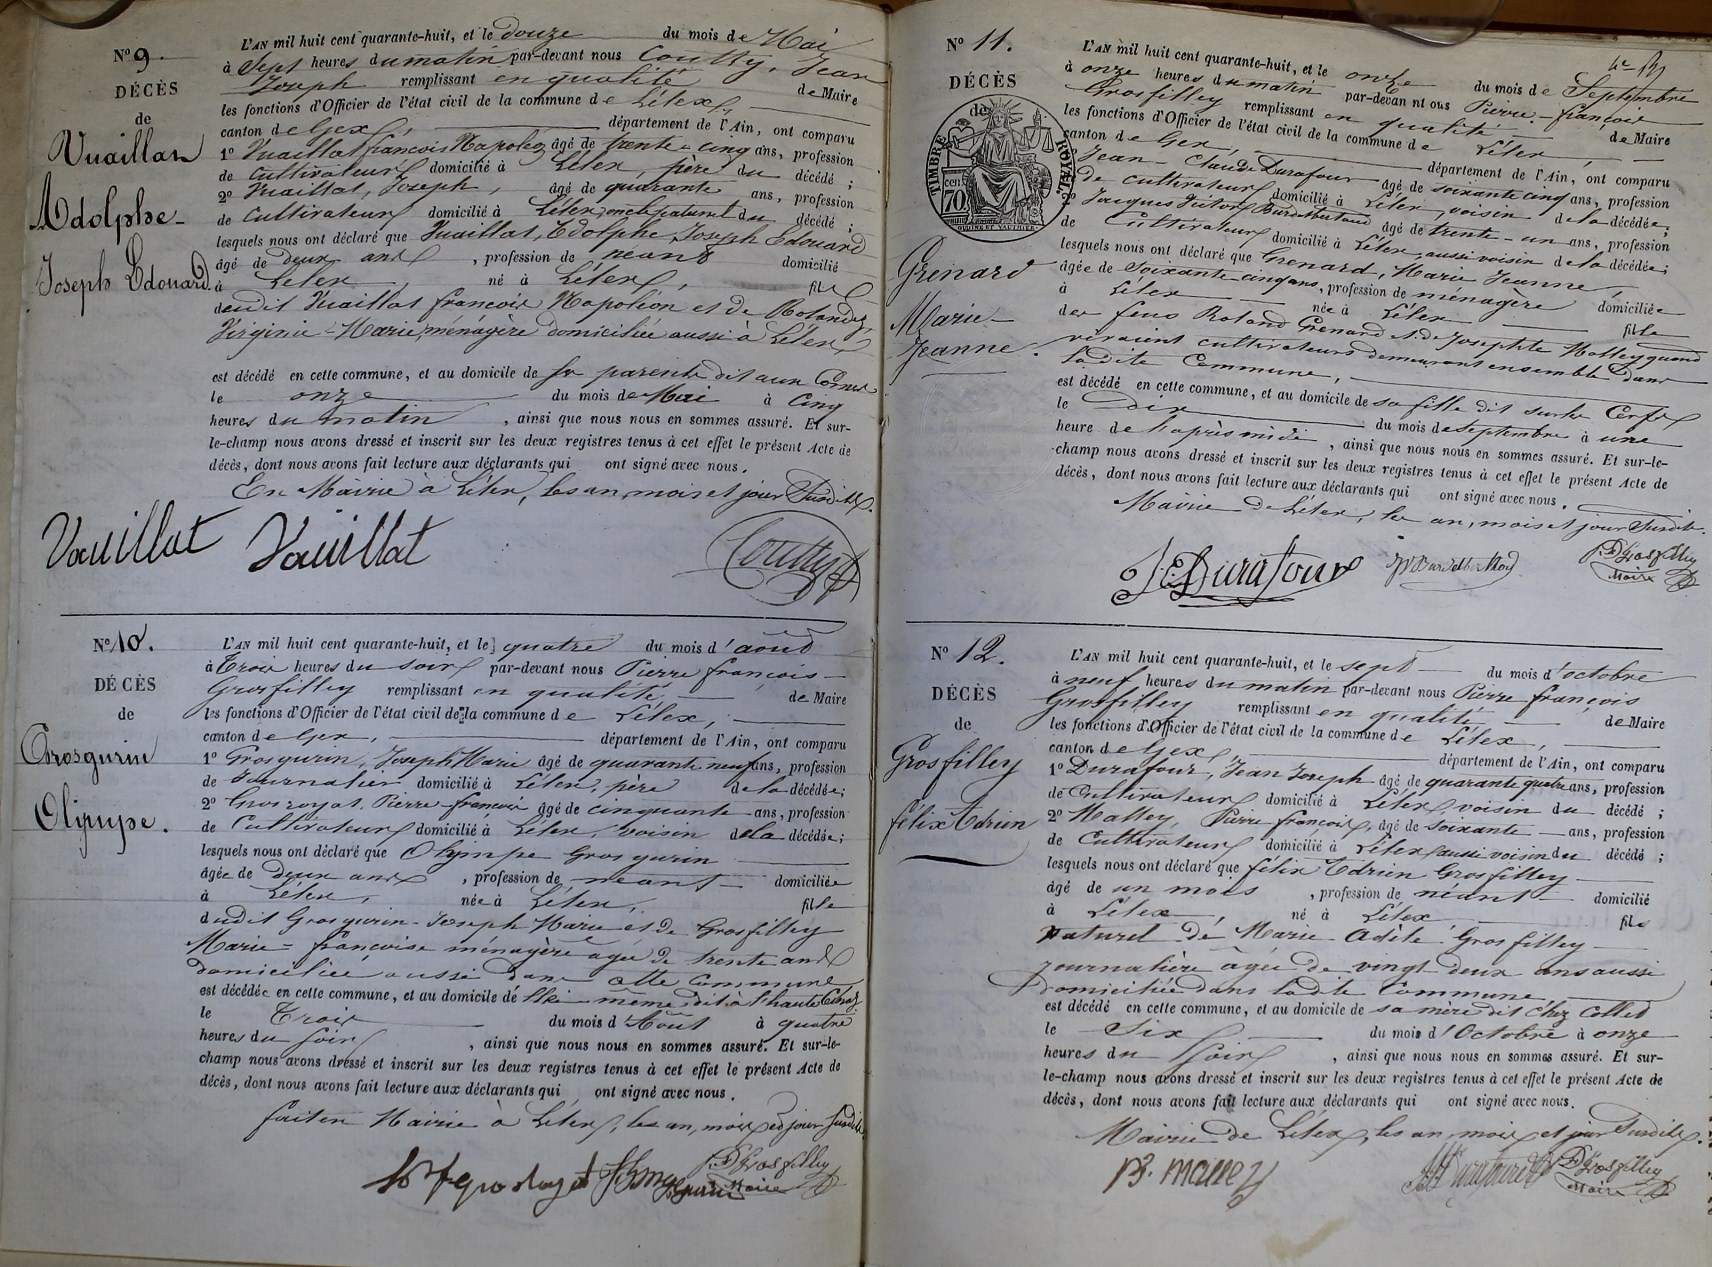 N° 9.
DÉCÈS
de
Vuaillat
Adolphe
Joseph Edouard
L'AN mil huit cent quarante-huit, et le douze du mois de Mai
à Sept heures du matin par-devant nous Coutty, Jean
Joseph remplissant en qualité de Maire
les fonctions d'Officier de l'état civil de la commune de Lélex,
canton de Gex, département de l'Ain, ont comparu
1° Vuaillat françois Napoléon âgé de trente-cinq ans, profession
de cultivateur domicilié à Lélex, père du décédé ;
2° Vuaillat, Joseph, âgé de quarante ans, profession
de cultivateur domicilié à Lélex, oncle paternel du décédé ;
lesquels nous ont déclaré que Vuaillat, Edolphe, Joseph Edouard
âgé de deux ans, profession de néant domicilié
à Lélex né à Lélex, fils
dudit Vuaillat françois Napoléon et de
Virginie-Marie, ménagère domiciliée aussi à Lélex
est décédé en cette commune, et au domicile de ses parents dit aux
le onze du mois de Mai à Cinq
heures du matin, ainsi que nous nous en sommes assuré. Et sur-
le-champ nous avons dressé et inscrit sur les deux registres tenus à cet effet le présent Acte de
décès, dont nous avons fait lecture aux déclarants qui ont signé avec nous.
En Mairie à Lélex, les an, mois et jour Susdits.
Vauillat Vauillat Coutty
N° 10.
DÉCÈS
de
Grosgurin
Olimpe.
L'AN mil huit cent quarante-huit, et le quatre du mois d'août
à Trois heures du soir par-devant nous Pierre françois
Grosfilley remplissant en qualité de Maire
les fonctions d'Officier de l'état civil de la commune de Lélex,
canton de Gex, département de l'Ain, ont comparu
1° Grosgurin, Joseph Marie âgé de quarante neuf ans, profession
de Journalier domicilié à Lélex, père de la décédée ;
2° Grosroyat, Pierre-françois âgé de cinquante ans, profession
de Cultivateur domicilié à Lélex, voisin de la décédée ;
lesquels nous ont déclaré que Olympe Grosgurin
âgée de deux ans, profession de néant domiciliée
à Lélex, née à Lélex, fille
dudit Grosgurin Joseph Marie et de Grosfilley
Marie-françoise ménagère agée de trente ans
domiciliée aussi dans cette Commune
est décédée en cette commune, et au domicile de lui même dit à
le Trois du mois d'Août à quatre
heures du soir, ainsi que nous nous en sommes assuré. Et sur-le-
champ nous avons dressé et inscrit sur les deux registres tenus à cet effet le présent Acte de
décès, dont nous avons fait lecture aux déclarants qui ont signé avec nous.
fait en Mairie à Lélex, les an, mois et jour Susdits.
P. F. Grosfilley
Maire
N° 11.
DÉCÈS
de
TIMBRE ROYAL
70 cen.
Grenard
Marie-
Jeanne.
L'AN mil huit cent quarante-huit, et le onze du mois de Septembre
à onze heures du matin par-devant nous Pierre-françois
Grosfilley remplissant en qualité de Maire
les fonctions d'Officier de l'état civil de la commune de Lélex,
canton de Gex, département de l'Ain, ont comparu
1° Jean-Claude Durafour âgé de soixante cinq ans, profession
de cultivateur domicilié à Lélex, voisin de la décédée ;
2° Jacques Victor âgé de trente-un ans, profession
de Cultivateur domicilié à Lélex, aussi voisin de la décédée ;
lesquels nous ont déclaré que Grenard, Marie Jeanne,
âgée de Soixante cinq ans, profession de ménagère domiciliée
à Lélex née à Lélex fille
des feus Roland Grenard et de Josephte Malley quand
vivaient cultivateurs demeurant ensemble dans
ladite Commune,
est décédé en cette commune, et au domicile de sa fille dit sur le
le dix du mois de septembre à une
heure de l'après midi, ainsi que nous nous en sommes assuré. Et sur-le-
champ nous avons dressé et inscrit sur les deux registres tenus à cet effet le présent Acte de
décès, dont nous avons fait lecture aux déclarants qui ont signé avec nous.
Mairie de Lélex, les an, mois et jour Susdits.
J. C. Durafour P. F. Grosfilley
Maire
N° 12.
DÉCÈS
de
Grosfilley
félix Edrien
L'AN mil huit cent quarante-huit, et le sept du mois d'octobre
à neuf heures du matin par-devant nous Pierre françois
Grosfilley remplissant en qualité de Maire
les fonctions d'Officier de l'état civil de la commune de Lélex,
canton de Gex, département de l'Ain, ont comparu
1° Durafour, Jean Joseph âgé de quarante quatre ans, profession
de Cultivateur domicilié à Lélex, voisin du décédé ;
2° Malley, Pierre françois, âgé de soixante ans, profession
de Cultivateur domicilié à Lélex, aussi voisin du décédé ;
lesquels nous ont déclaré que félix Edrien Grosfilley
âgé de un mois, profession de néant domicilié
à Lélex, né à Lélex fils
naturel de Marie Adèle Grosfilley
journalière âgée de vingt deux ans aussi
domiciliée dans ladite Commune,
est décédé en cette commune, et au domicile de sa mère dit chez Collet
le Six du mois d'Octobre à onze
heures du soir, ainsi que nous nous en sommes assuré. Et sur-
le-champ nous avons dressé et inscrit sur les deux registres tenus à cet effet le présent Acte de
décès, dont nous avons fait lecture aux déclarants qui ont signé avec nous.
Mairie de Lélex, les an, mois et jour Susdits.
P. F. Grosfilley
Maire